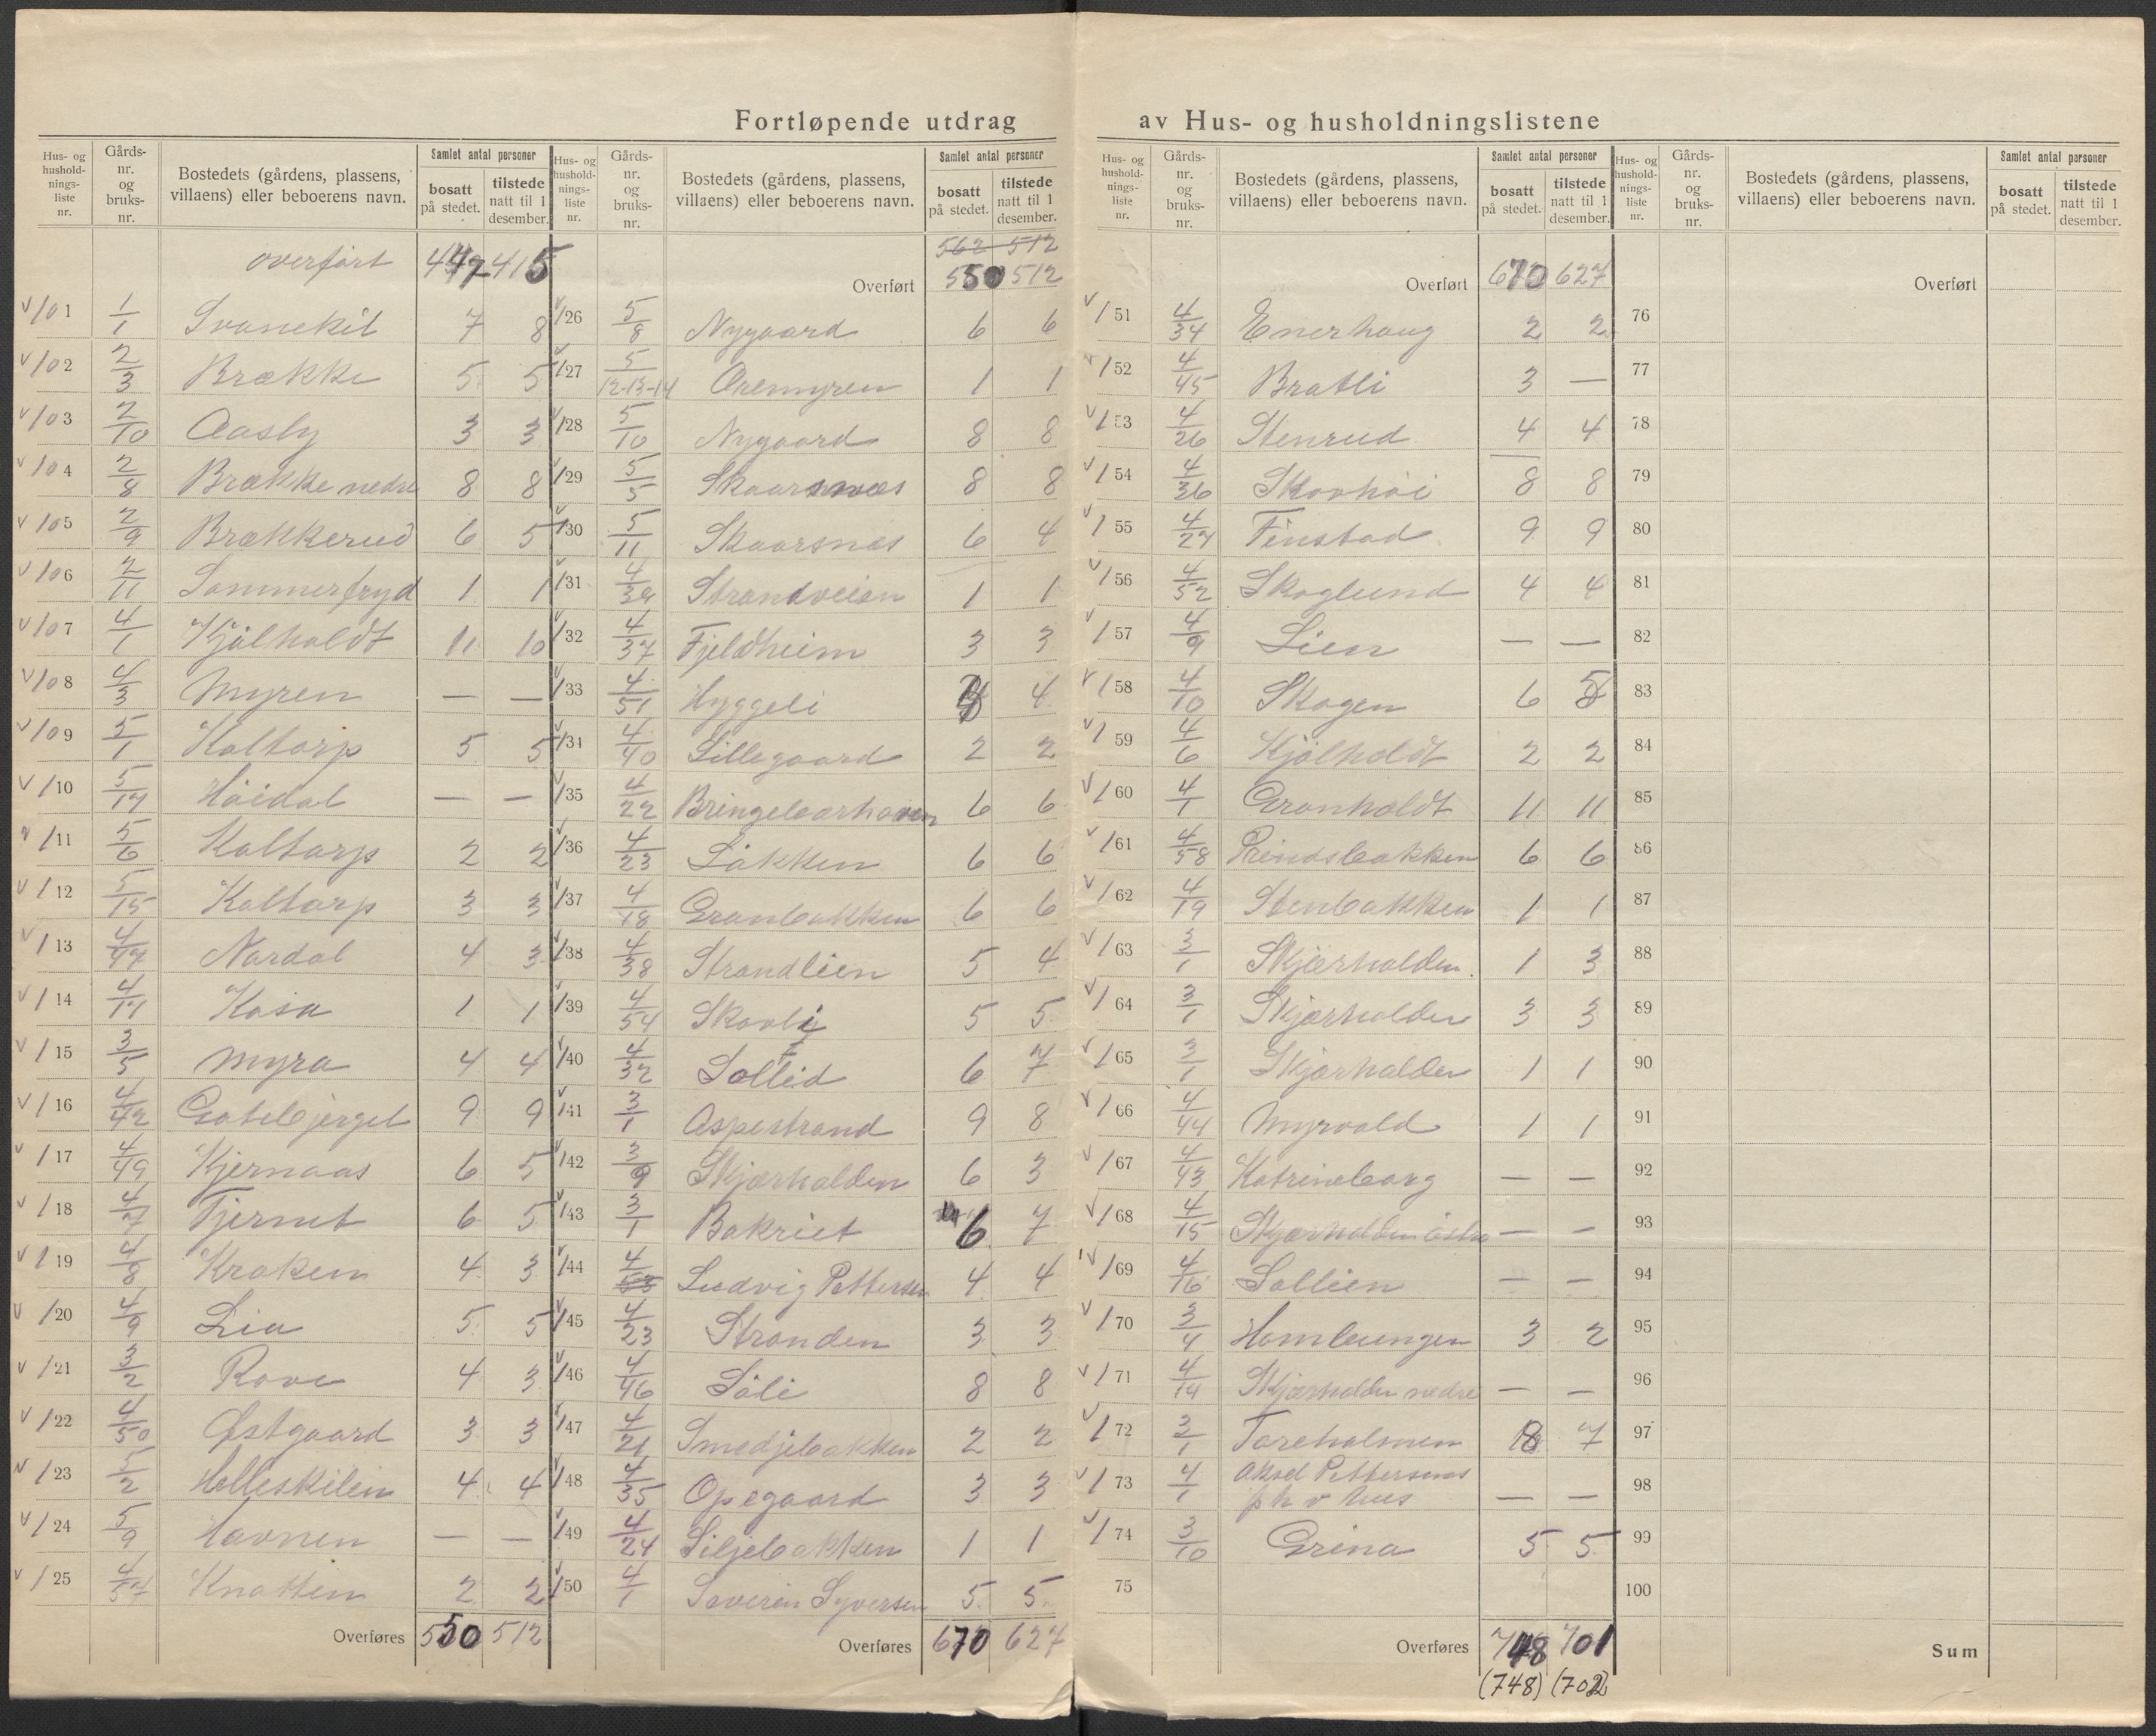 Fortløpende utdrag av Hus- og husholdningslistene
Hus- og husholdnings- liste nr. | Gårds- nr. og bruks- nr. | Bostedets (gårdens, plassens, villaens) eller beboerens navn. | Samlet antal personer bosatt på stedet. | tilstede natt til 1 desember.
overført 447 415
101 1/1 Svanekil 7 8
102 2/3 Brække 5 5
103 2/10 Aasly 3 3
104 2/8 Brække nedre 8 8
105 2/9 Brækkerud 6 5
106 2/11 Sommerfryd 1 1
107 4/1 Kjölholdt 11 10
108 4/3 Myren — —
109 5/1 Holtorp 5 5
110 5/17 Höidal — —
111 5/6 Holtorp 2 2
112 5/15 Holtorp 3 3
113 4/47 Nordal 4 3
114 4/11 Kasa 1 1
115 3/5 Myra 4 4
116 4/42 Gatebjerget 9 9
117 4/49 Kjernaas 6 5
118 4/7 Tjernet 6 5
119 4/8 Kroken 4 3
120 4/9 Lia 5 5
121 3/2 Rove 4 3
122 4/50 Østgaard 3 3
123 5/2 Holleskilen 4 4
124 5/9 Havnen — —
125 4/57 Knatten 2 2
Overføres 550 512
Hus- og husholdnings- liste nr. | Gårds- nr. og bruks- nr. | Bostedets (gårdens, plassens, villaens) eller beboerens navn. | Samlet antal personer bosatt på stedet. | tilstede natt til 1 desember.
562 512
Overført 550 512
126 5/8 Nygaard 6 6
127 5/12-13-14 Oremyren 1 1
128 5/10 Nygaard 8 8
129 5/5 Skaarsnæs 8 8
130 5/11 Skaarsnes 6 4
131 4/39 Strandveien 1 1
132 4/37 Fjeldheim 3 3
133 4/51 Hyggeli 4
134 4/40 Lillegaard 2 2
135 4/22 Bringebærhaven 6 6
136 4/23 Løkken 6 6
137 4/18 Granbakken 6 6
138 4/38 Strandlien 5 4
139 4/54 Skovli 5 5
140 4/32 Sollid 6 7
141 3/1 Aspestrand 9 8
142 3/9 Skjærhalden 6 3
143 3/1 Bakriet 6 7
144 4/53 Ludvig Pettersen 4 4
145 4/23 Stranden 3 3
146 4/46 Söli 8 8
147 4/21 Smedjebakken 2 2
148 4/35 Opegaard 3 3
149 4/24 Siljebakken 1 1
150 4/1 Severin Syversen 5 5
Overføres 670 627
Hus- og husholdnings- liste nr. | Gårds- nr. og bruks- nr. | Bostedets (gårdens, plassens, villaens) eller beboerens navn. | Samlet antal personer bosatt på stedet. | tilstede natt til 1 desember.
Overført 670 627
151 4/34 Enerhaug 2 2
152 4/45 Bratli 3 —
153 4/26 Stenrud 4 4
154 4/36 Skovhöi 8 8
155 4/27 Finstad 9 9
156 4/52 Skoglund 4 4
157 4/9 Lien — —
158 4/10 Skogen 6 5
159 4/6 Kjölholdt 2 2
160 4/1 Grønholdt 11 11
161 4/58 Prindsbakken 6 6
162 4/19 Stenbakken 1 1
163 3/1 Skjærhalden 1 3
164 3/1 Skjærhalden 3 3
165 3/1 Skjærhalden 1 1
166 4/44 Myrvold 1 1
167 4/43 Katrineborg — —
168 4/15 Skjærhalden östre — —
169 4/16 Sollien — —
170 3/4 Homlungen 3 2
171 4/14 Skjærhalden nedre — —
172 3/1 Toreholmen 8 7
173 4/1 Aksel Pettersens
hus — —
174 3/10 Grina 5 5
75
Overføres 748 701
(748) (702)
Hus- og husholdnings- liste nr. | Gårds- nr. og bruks- nr. | Bostedets (gårdens, plassens, villaens) eller beboerens navn. | Samlet antal personer bosatt på stedet. | tilstede natt til 1 desember.
Overført
76
77
78
79
80
81
82
83
84
85
86
87
88
89
90
91
92
93
94
95
96
97
98
99
100
Sum